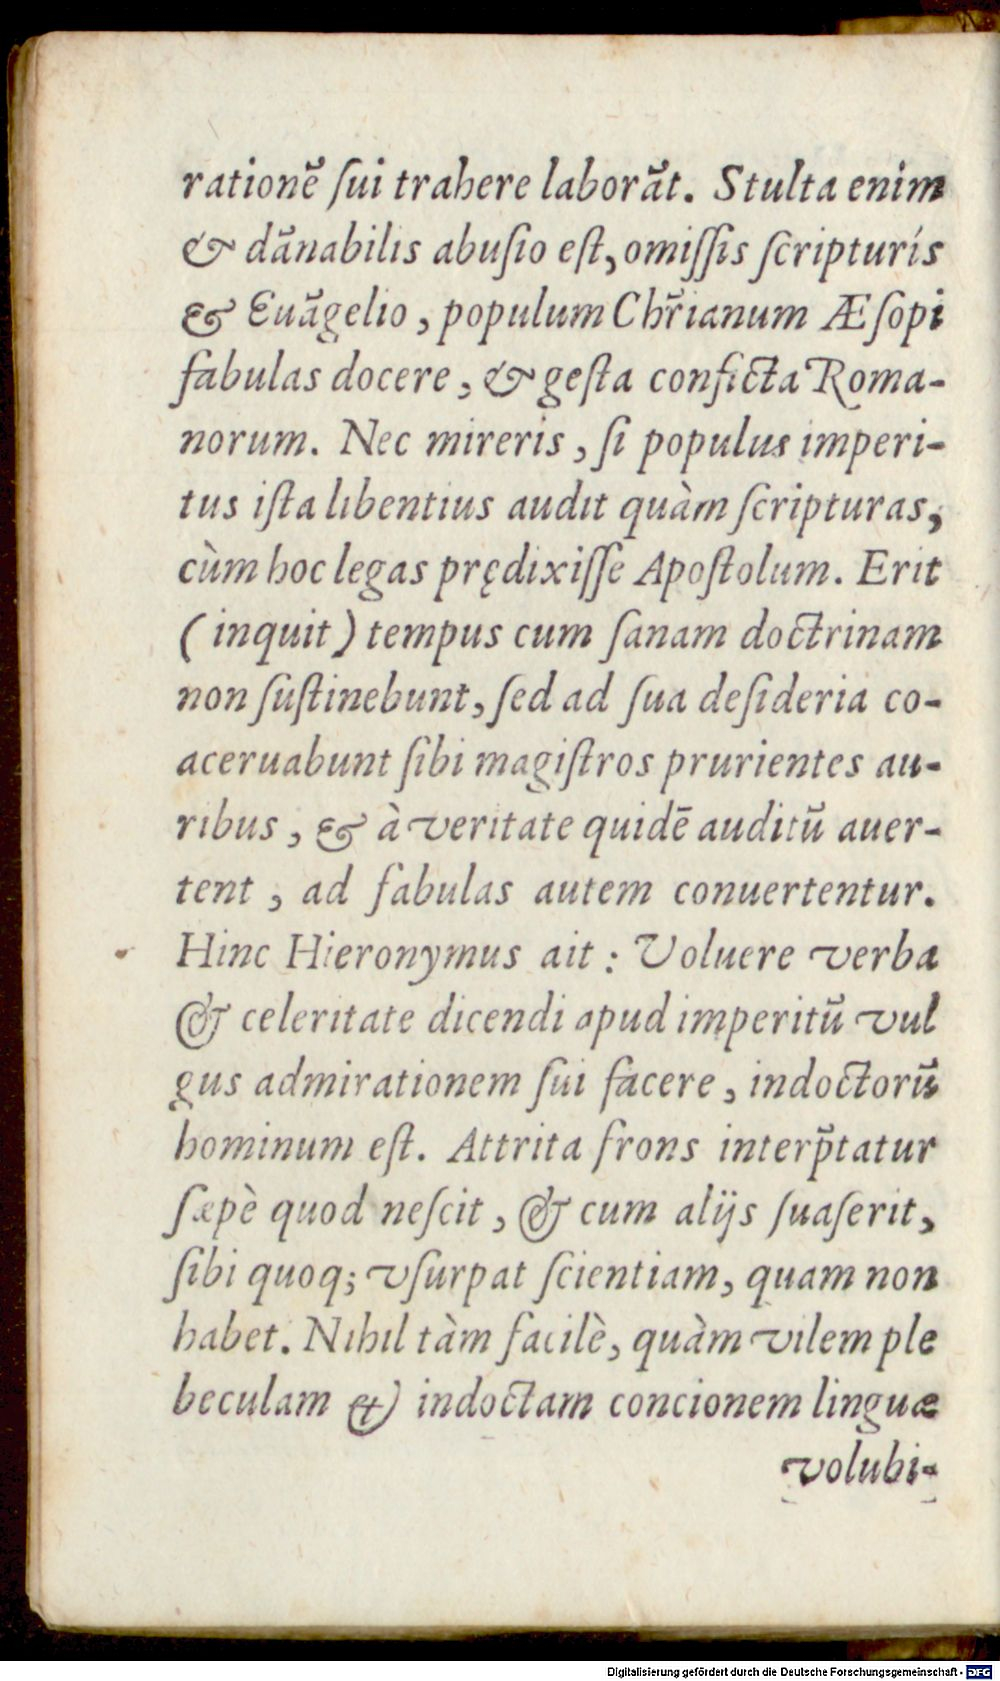 rationē ſui trahere laborãt. Stulta enim
& dãnabilis abuſio eſt, omiſſis ſcripturís
& Euãgelio, populum Chr̃ianum Æſopi
fabulas docere, & geſta conficta Roma-
norum. Nec mireris, ſi populus imperi-
tus iſta libentius audit quàm ſcripturas,
cùm hoc legas prędixiſſe Apoſtolum. Erit
(inquit) tempus cum ſanam doctrinam
non ſuſtinebunt, ſed ad ſua deſideria co-
aceruabunt ſibi magiſtros prurientes au-
ribus, & à veritate quidē auditū auer-
tent, ad fabulas autem conuertentur.
Hinc Hieronymus ait: Voluere verba
& celeritate dicendi apud imperitū vul
gus admirationem ſui facere, indoctorū
hominum eſt. Attrita frons interp̃tatur
ſæpè quod neſcit, & cum alijs ſuaſerit,
ſibi quoq; vſurpat ſcientiam, quam non
habet. Nihil tàm facilè, quàm vilem ple
beculam & indoctam concionem linguæ
volubi-
Digitalisierung gefördert durch die Deutsche Forschungsgemeinschaft - DFG